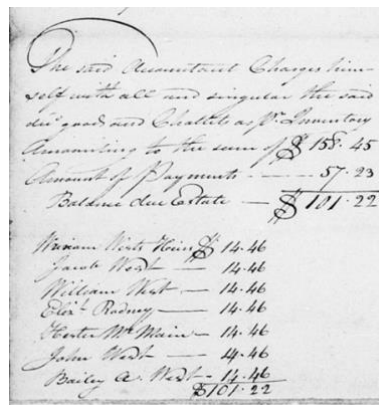 The said Accountant Charges him-
self with all and singular the said
dec goods and Chattels as Pr. Inventory
Amounting to the sum of $ 158.45
Amount of Payments - 57.23
Balance due Estate - $ 101.22
Wests Heirs $ 14.46
Jacob West - 14.46
William West - 14.46
Elizt. Rodney - 14.46
Hester Mc Main - 14.46
John West - 14.46
Bailey A. West - 14.46
$101.22